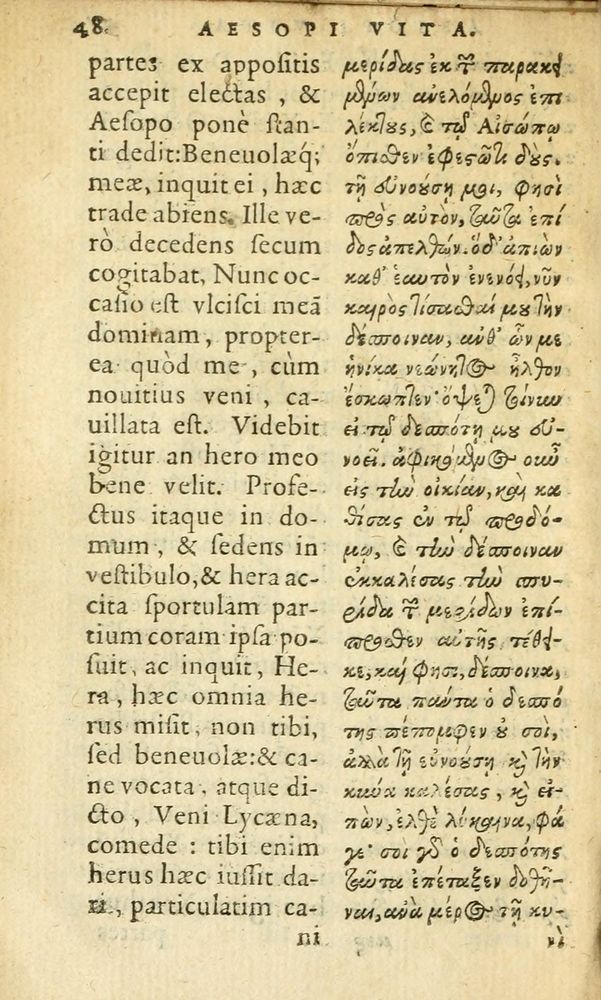 48. AESOPI VITA.
partes ex appoſitis
accepit electas , &
Aeſopo ponè ſtan-
ti dedit:Beneuolæq́;
meæ, inquit ei , hæc
trade abiens. Ille ve-
rò decedens ſecum
cogitabat, Nunc oc-
caſio eſt vlciſci meã
dominam, propter-
ea quòd me , cùm
nouitius veni , ca-
uillata eſt. Videbit
igitur an hero meo
bene velit. Profe-
ctus itaque in do-
mum, & ſedens in
veſtibulo,& hera ac-
cita ſportulam par-
tium coram ipſa po-
ſuit, ac inquit, He-
ra , hæc omnia he-
rus miſit, non tibi,
ſed beneuolæ:& ca-
ne vocata, atque di-
cto , Veni Lycæna,
comede : tibi enim
herus hæc iuſſit da-
ri , particulatim ca-
ni
μερίδας ἐκ τῶν παρακει
μένων ἀνελόμενος ἐπι
λέκτους, καὶ τῷ Αἰσώπῳ
ὄπισθεν ἐφεστῶτι δούς.
τῇ εὐνούσῃ μοι, φησὶ
πρὸς αὐτὸν, ταῦτα ἐπί
δος ἀπελθών. ὁ δ' ἀπιὼν
καθ' ἑαυτὸν ἐνενόει, νῦν
καιρὸς τίσασθαί μου τὴν
δέσποιναν, ἀνθ' ὧν με
ἡνίκα νεώνητος ἦλθον
ἔσκωπτεν· ὄψεται τοίνυν
εἰ τῷ δεσπότῃ μου εὐ-
νοεῖ. ἀφικόμενος οὖν
εἰς τὴν οἰκίαν, καὶ κα
θίσας ἐν τῷ προδό-
μῳ, καὶ τὴν δέσποιναν
ἐκκαλέσας τὴν σπυ-
ρίδα τῶν μερίδων ἐπί-
προσθεν αὐτῆς τέθει-
κε, καί φησι, δέσποινα,
ταῦτα πάντα ὁ δεσπό
της πέπομφεν οὐ σοὶ,
ἀλλὰ τῇ εὐνούσῃ καὶ τὴν
κύνα καλέσας , καὶ εἰ-
πὼν, ἐλθὲ λύκαινα, φά
γε· σοὶ γὰρ ὁ δεσπότης
ταῦτα ἐπέταξεν δοθῆ-
ναι, ἀνὰ μέρος τῇ κυ-
νὶ